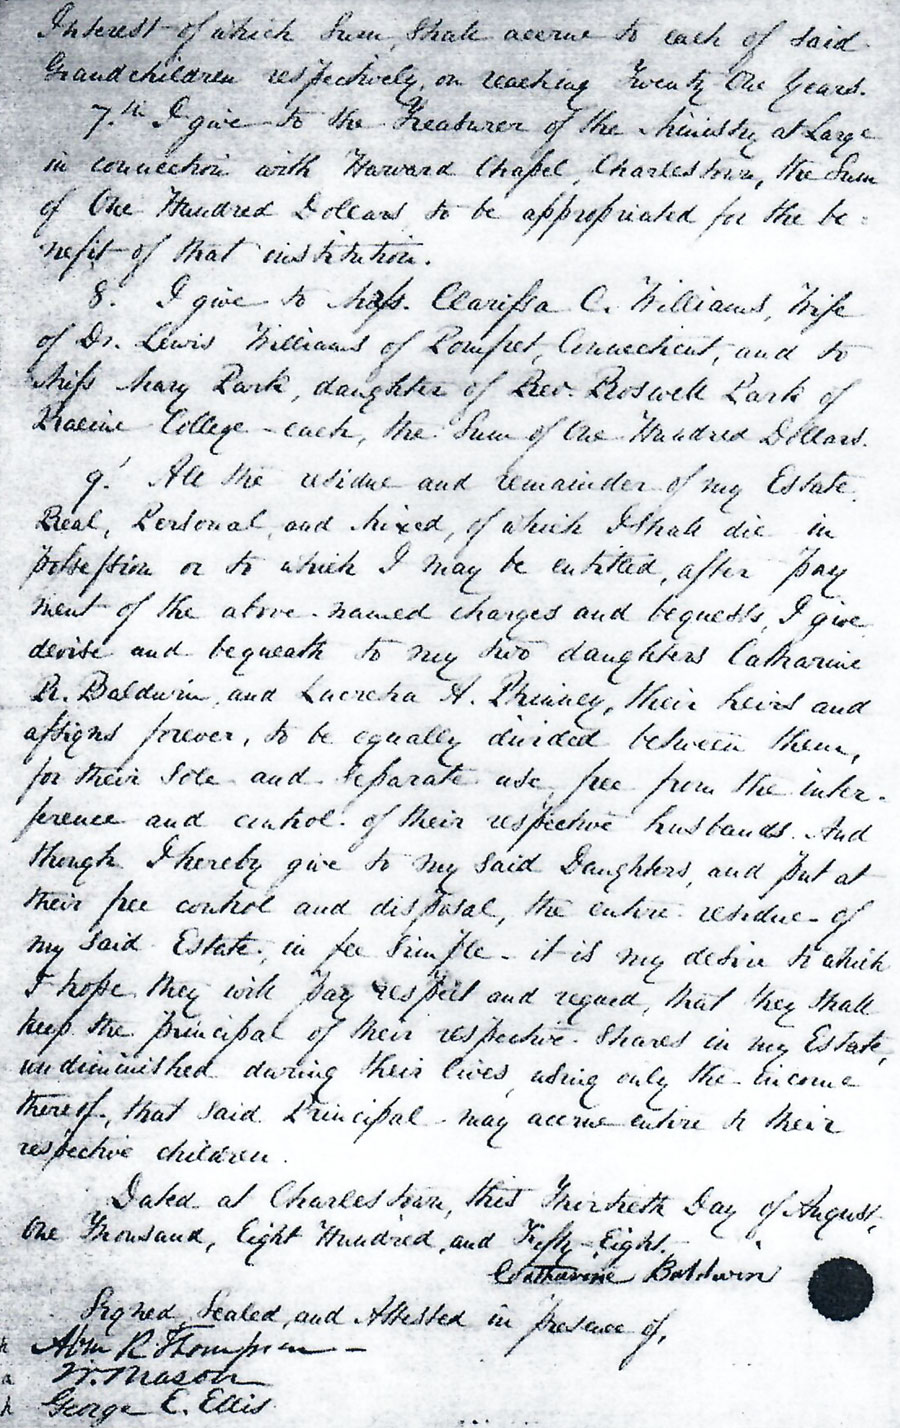 Interest of which Sum, Shall accrue to each of said
Grandchildren respectively, on reaching Twenty One Years.
7.th I give to the Treasurer of the Ministry at Large
in connection with Harvard Chapel, Charlestown, the Sum
of One Hundred Dollars, to be appropriated for the be=
nefit of that institution.
8. I give to Mrs. Clarissa C. Williams, Wife
of Dr. Lewis Williams of Pomfret, Connecticut, and to
Miss Mary Park, daughter of Rev. Roswell Park of
Racine College - each, the Sum of One Hundred Dollars.
9. All the residue and remainder of my Estate,
Real, Personal, and Mixed, of which I shall die in
possession or to which I may be entitled, after pay
ment of the above-named charges and bequests, I give
devise and bequeath to my two daughters Catharine
R. Baldwin, and Lucretia A. Phinney, their heirs and
assigns forever, to be equally divided between them,
for their sole and separate use, free from the inter-
ference and control of their respective husbands. And
though I hereby give to my said Daughters, and put at
their free control and disposal, the entire residue of
my said Estate, in fee simple - it is my desire to which
I hope they will pay respect and regard, that they shall
keep the principal of their respective Shares in my Estate,
undiminished during their lives, using only the income
thereof, that said Principal may accrue entire to their
respective children.
Dated at Charlestown, this Thirtieth Day of August,
One Thousand, Eight Hundred, and Fifty-Eight.
Catharine Baldwin
Signed, Sealed, and Attested in presence of,
Abm R. Thompson
W. Mason
George E. Ellis